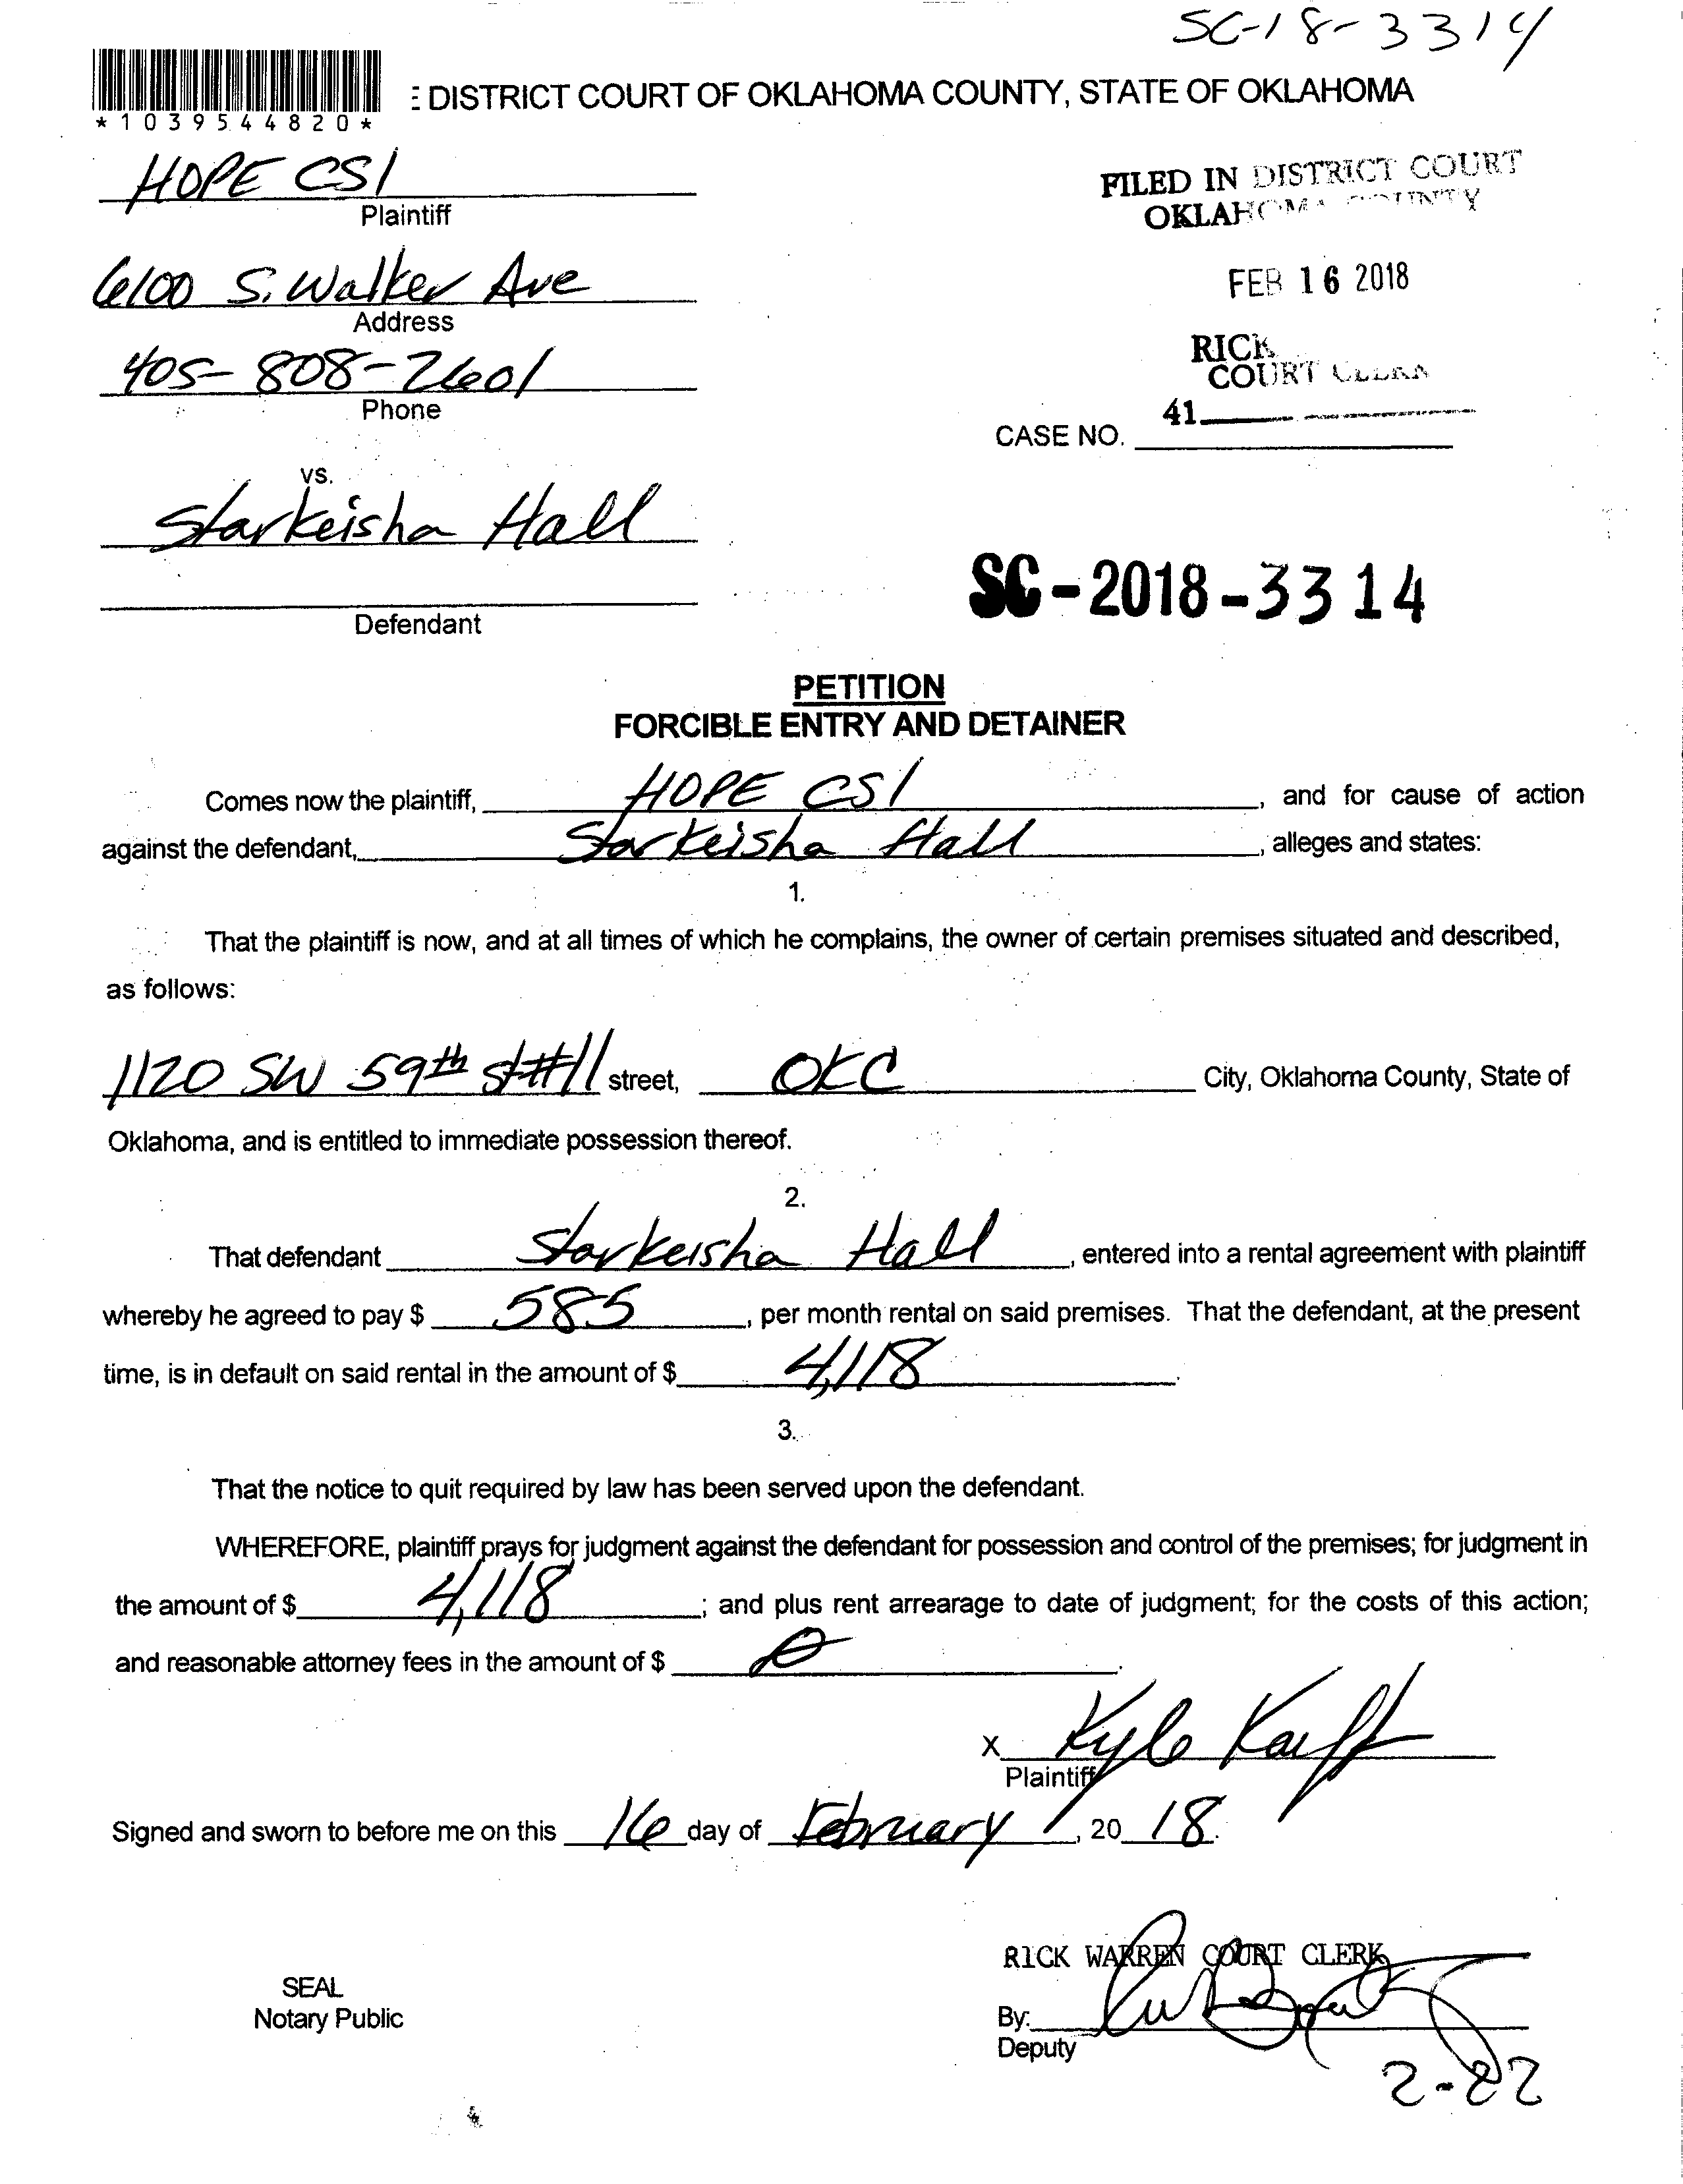 SC-18-3314
DISTRICT COURT OF OKLAHOMA COUNTY, STATE OF OKLAHOMA
*1039544820*
HOPE CSI
Plaintiff
FILED IN DISTRICT COURT
OKLAHOMA COUNTY
6100 S. Walker Ave
Address
FEB 16 2018
405-808-2601
Phone
RICK
COURT CLERK
41
CASE NO.
vs.
Starkeisha Hall
SC-2018-3314
Defendant
PETITION
FORCIBLE ENTRY AND DETAINER
Comes now the plaintiff, HOPE CSI, and for cause of action
against the defendant, Starkeisha Hall, alleges and states:
1.
That the plaintiff is now, and at all times of which he complains, the owner of certain premises situated and described,
as follows:
1120 SW 59th st #11 street, OKC City, Oklahoma County, State of
Oklahoma, and is entitled to immediate possession thereof.
2.
That defendant Starkeisha Hall, entered into a rental agreement with plaintiff
whereby he agreed to pay $ 585, per month rental on said premises. That the defendant, at the present
time, is in default on said rental in the amount of $ 4,118.
3.
That the notice to quit required by law has been served upon the defendant.
WHEREFORE, plaintiff prays for judgment against the defendant for possession and control of the premises; for judgment in
the amount of $ 4,118; and plus rent arrearage to date of judgment; for the costs of this action;
and reasonable attorney fees in the amount of $ 0.
X Kyle
Plaintiff
Signed and sworn to before me on this 16 day of February, 20 18.
RICK WARREN COURT CLERK
SEAL
Notary Public
By:
Deputy
2-22